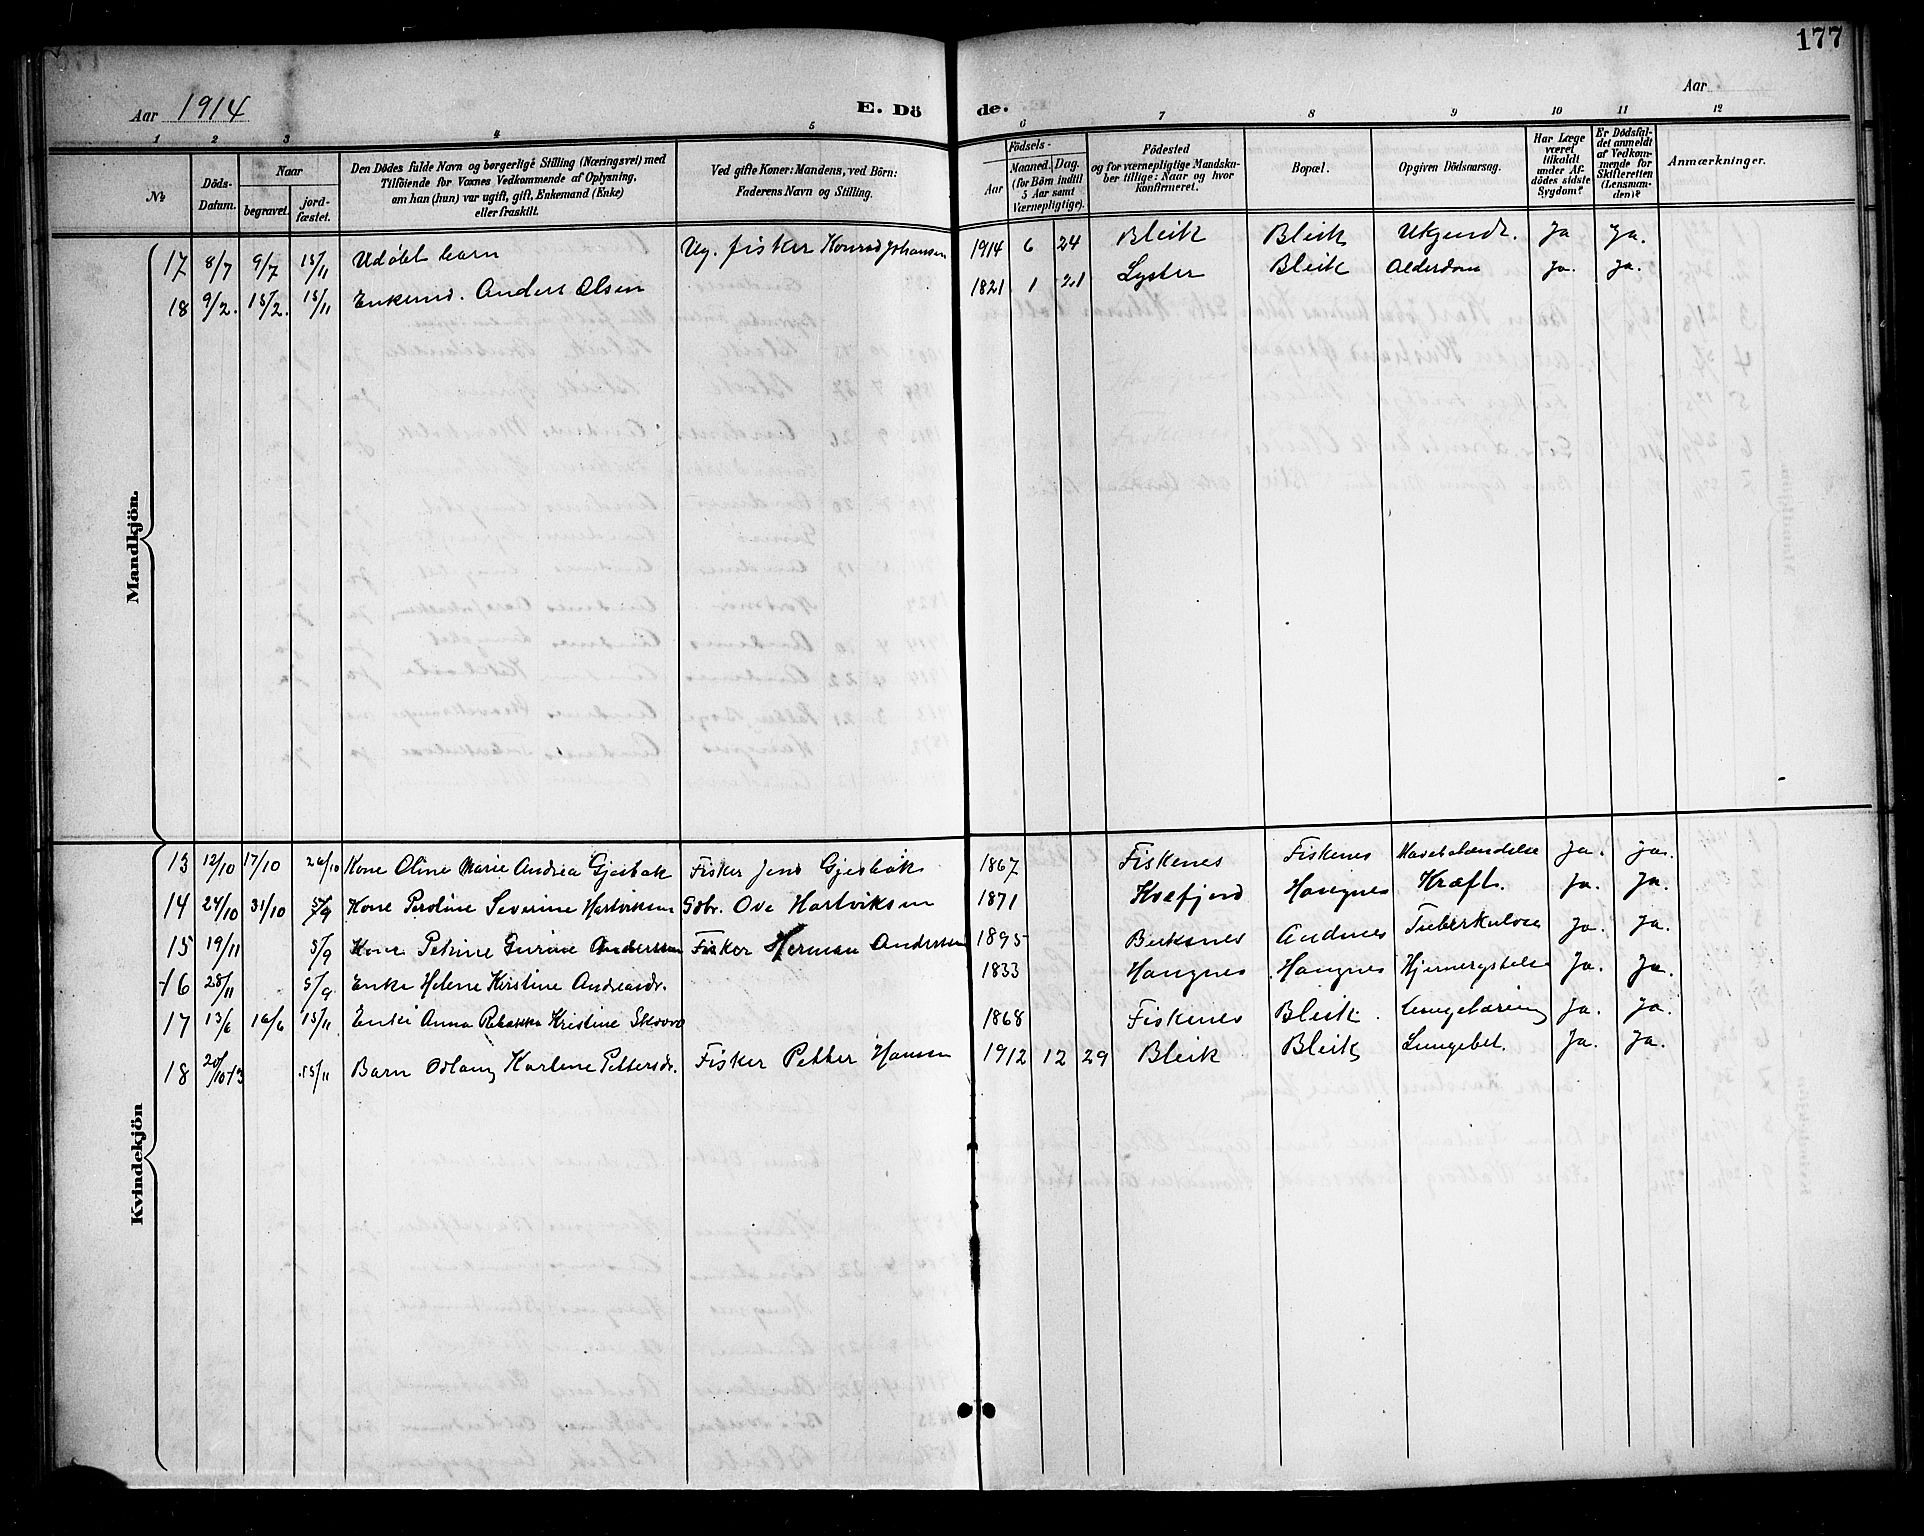 177
Aar 1914
E. Dö
de.
Aar
1 2 3 4 5 6 7 8 9 10 11 12
№
Döds-Datum.
Naar
begravet.
jord-fæstet.
Den Dödes fulde Navn og borgerlige Stilling (Næringsvei) med
Tilföiende for Voxnes Vedkommende af Oplysning,
om han (hun) var ugift, gift, Enkemand (Enke)
eller fraskilt.
Ved gifte Koner: Mandens, ved Börn:
Faderens Navn og Stilling.
Födsels-
Aar
Maaned. Dag.
(for Börn indtil
5 Aar samt
Værnepligtige).
Födested
og for værnepligtige Mandska-
ber tillige: Naar og hvor
Konfirmeret.
Bopæl.
Opgiven Dödsaarsag.
Har Læge
været
tilkaldt
under Af-
dödes sidste
Sygdom?
Er Dödsfal-
det anmeldt
af Vedkom-
mende for
Skifteretten
(Lensman-
den)?
Anmærkninger.
Mandkjön.
17 8/7 9/7 15/11 Udöbt barn Ug. fisker Konrad Johansen 1914 6 24 Bleik Bleik Ukjendt. Ja Ja.
18 9/2. 15/2. 15/11 Enkemd. Anders Olsen 1821 1 21 Lyster Bleik Alderdom Ja. Ja.
Kvindekjön
13 12/10 17/10 26/10 Kone Oline Marie Andrea Gjesbak Fisker Jens Gjesbak 1867 Fiskenes Fiskenes Ja. Ja.
14 24/10 31/10 5/9 Kone Peroline Severine Hartviksen Gdbr. Ove Hartviksen 1871 Kvæfjord Haugnes Kræft. Ja. Ja.
15 19/11 5/9 Kone Petrine Anderssen Fisker Herman Anderssen 1895 Andnes Tuberkulose Ja. Ja.
16 28/11 5/9 Enke Helene Kirstine Andreasdr. 1833 Haugnes Haugnes Hjernerystelse Ja. Ja.
17 13/6 16/6 15/11 Enke Anna Rebekka Kristine 1868 Fiskenes Bleik. Ja. Ja.
18 20/10 13 15/11 Barn Odlaug Karlene Pettersdr. Fisker Petter Hansen 1912 12 29 Bleik Bleik Lungebet. Ja. Ja.